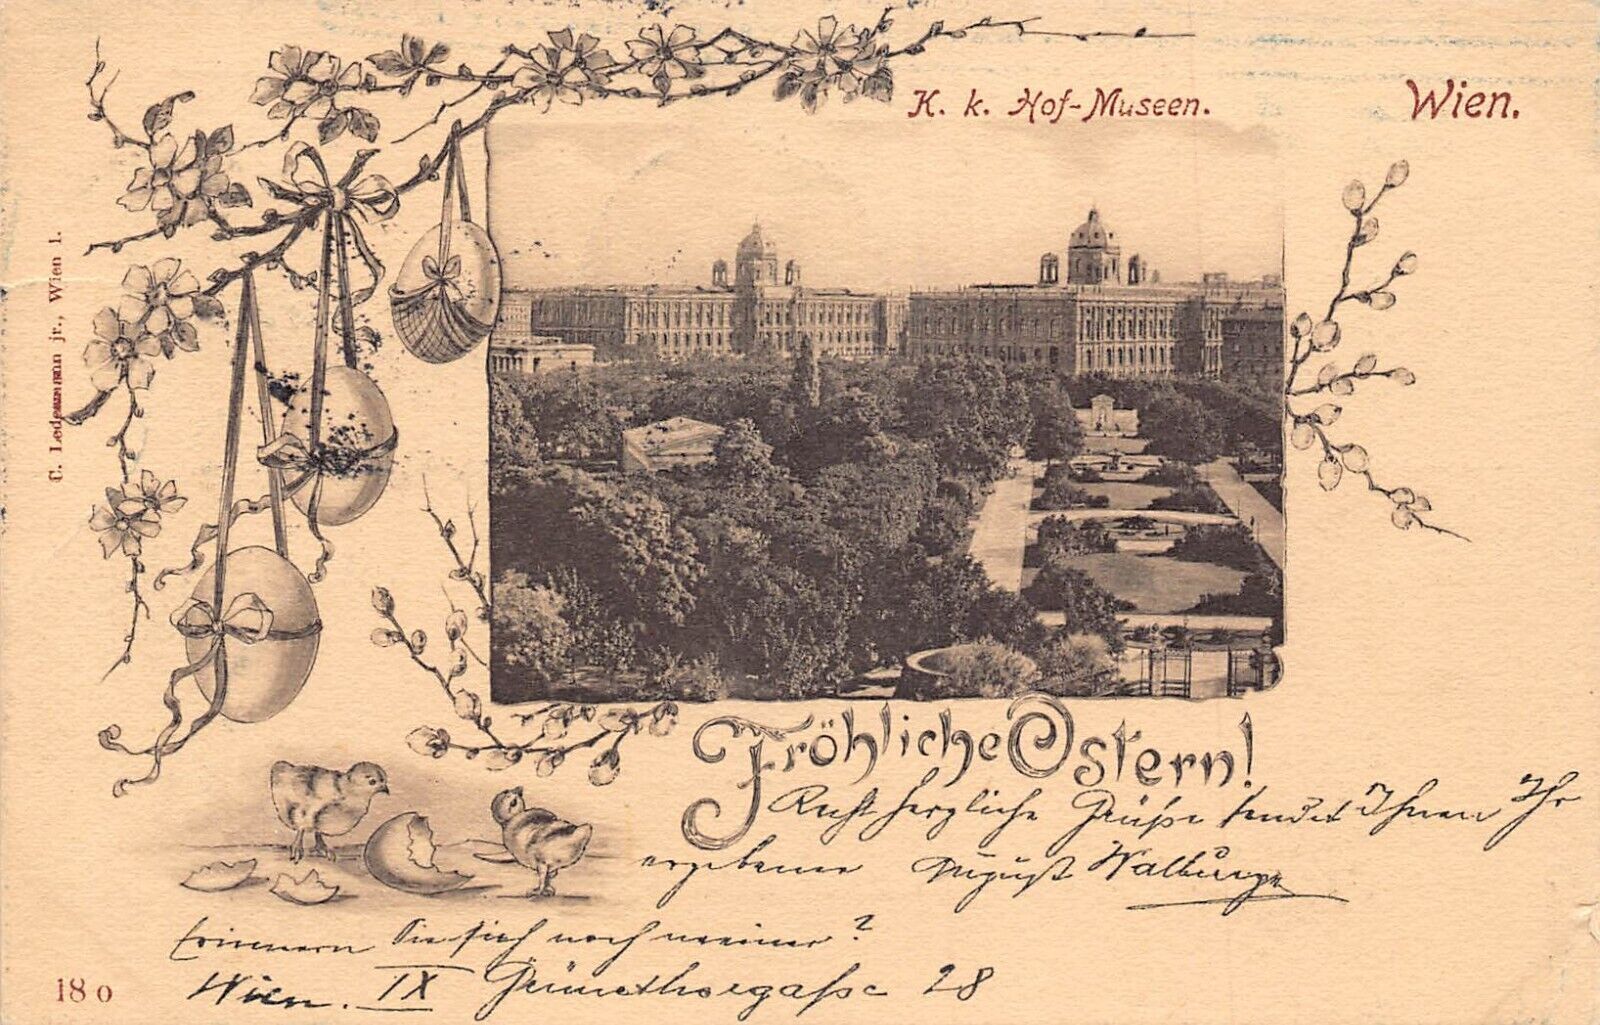 K. k. Hof-Museen.
Wien.
C. Ledermann jr., Wien 1.
Fröhliche Ostern!
Recht herzliche Grüße sendet Ihnen Ihr
ergebener August Walburg
Erinnern Sie sich noch meiner?
Wien. IX Grünethorgasse 28
18 o